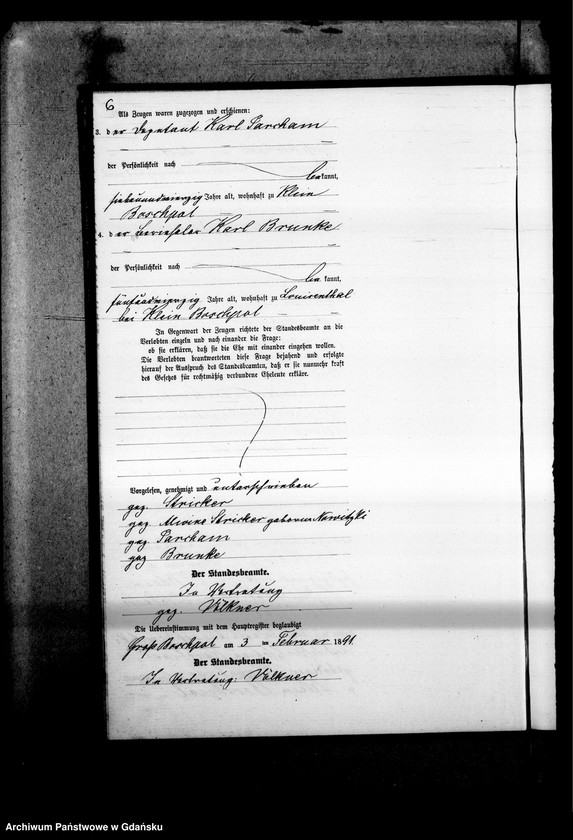 6
Als Zeugen waren zugezogen und erschienen:
3. der Deputant Karl Parcham
der Persönlichkeit nach
bekannt,
siebenundvierzig Jahre alt, wohnhaft zu Klein
Boschpol
4. der Karl Brunke
der Persönlichkeit nach
bekannt,
fünfundvierzig Jahre alt, wohnhaft zu Louisenthal
bei Klein Boschpol
In Gegenwart der Zeugen richtete der Standesbeamte an die
Verlobten einzeln und nach einander die Frage:
ob sie erklären, daß sie die Ehe mit einander eingehen wollen.
Die Verlobten beantworteten diese Frage bejahend und erfolgte
hierauf der Ausspruch des Standesbeamten, daß er sie nunmehr kraft
des Gesetzes für rechtmäßig verbundene Eheleute erkläre.
Vorgelesen, genehmigt und unterschrieben
gez. Stricker
gez. Alwine Stricker geborene Nawitzki
gez. Parcham
gez. Brunke
Der Standesbeamte.
In Vertretung
gez. Völkner
Die Uebereinstimmung mit dem Hauptregister beglaubigt
Groß Boschpol am 3 ten Februar 1891.
Der Standesbeamte.
In Vertretung: Völkner
Archiwum Państwowe w Gdańsku